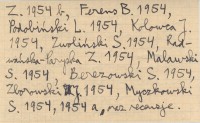 Z. 1954 b, Ferens B. 1954,
Podobiński L. 1954, Kolowca J.
1954, Zwoliński S. 1954, Rad-
wańska- Z. 1954, Malawski
S. 1954, Berezowski S. 1954,
Zborowski J. 1954, Myczkowski
S. 1954, 1954 a, oraz recenzje.